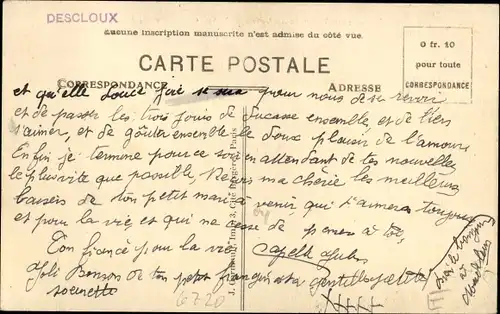 DESCLOUX
aucune inscription manuscrite n'est admise du côté vue.
CARTE POSTALE
0 fr. 10
pour toute
CORRESPONDANCE
CORRESPONDANCE
ADRESSE
et qu'elle douce joie se sera pour nous de se revoir
et de passer les trois jours de ducasse ensemble, et de
s'aimer, et de goûter ensemble le doux plaisir de l'amour
Enfin je termine pour ce soir en attendant de tes nouvelles
le plus vite que possible, Reçois ma chérie les meilleurs
baisers de ton petit mari à venir qui t'aimera toujours
et pour la vie, et qui ne cesse de penser à toi,
Ton fiancé pour la vie
Joli Bonsoir de ton petit
6720